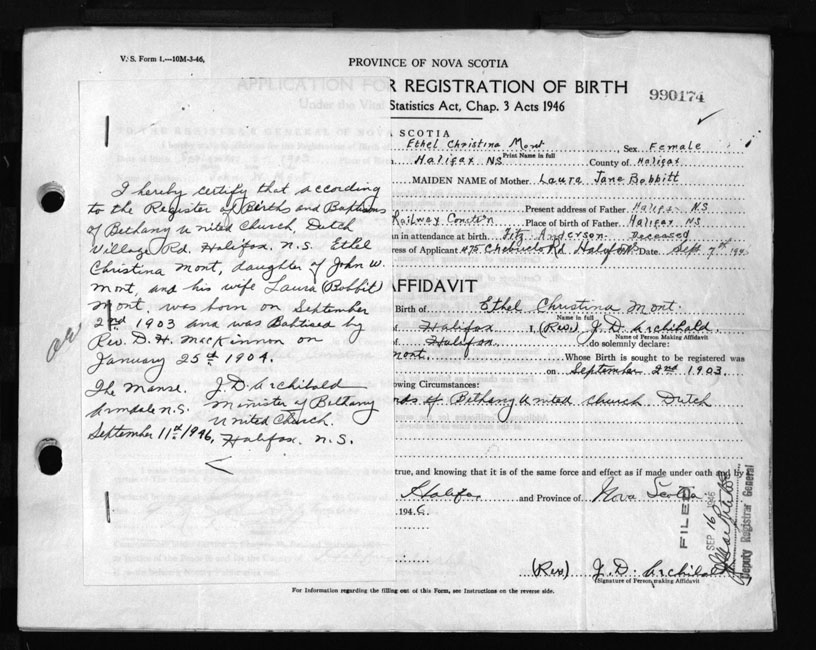 V. S. Form 1.—10M-3-46,
PROVINCE OF NOVA SCOTIA
APPLICATION FOR REGISTRATION OF BIRTH
990174
Under the Vital Statistics Act, Chap. 3 Acts 1946
SCOTIA
Ethel Christina Mont Sex Female
Print Name in full
Halifax NS County of Halifax
MAIDEN NAME of Mother Laura Jane Bobbitt
Present address of Father Halifax NS
Railway Const'n Place of birth of Father Halifax NS
in attendance at birth Anderson Deceased
ress of Applicant 475 Chebucto Rd Halifax NS Date Sept 7th 194
I hereby certify that according
to the Register of Births and Baptisms
of Bethany United Church, Dutch
Village Rd. Halifax, N.S. Ethel
Christina Mont, daughter of John W.
Mont, and his wife Laura (Bobbit)
Mont, was born on September
2nd 1903 and was Baptised by
Rev. D. H. MacKinnon on
January 25th 1904.
The Manse, J. D. Archibald
Armdale N.S. Minister of Bethany
United Church.
September 11th 1946, Halifax. N.S.
AFFIDAVIT
Birth of Ethel Christina Mont.
Name in full
of Halifax I, (Rev) J. D. Archibald.
Name of Person Making Affidavit
of Halifax. do solemnly declare:
Mont. Whose Birth is sought to be registered was
on September 2nd 1903.
owing Circumstances:
rds of Bethany United Church Dutch
true, and knowing that it is of the same force and effect as if made under oath and by
Halifax and Province of Nova Scotia
194 6
FILED
SEP 16 1946
Deputy Registrar General
(Rev) J. D. Archibald
(Signature of Person making Affidavit
For Information regarding the filling out of this Form, see Instructions on the reverse side.